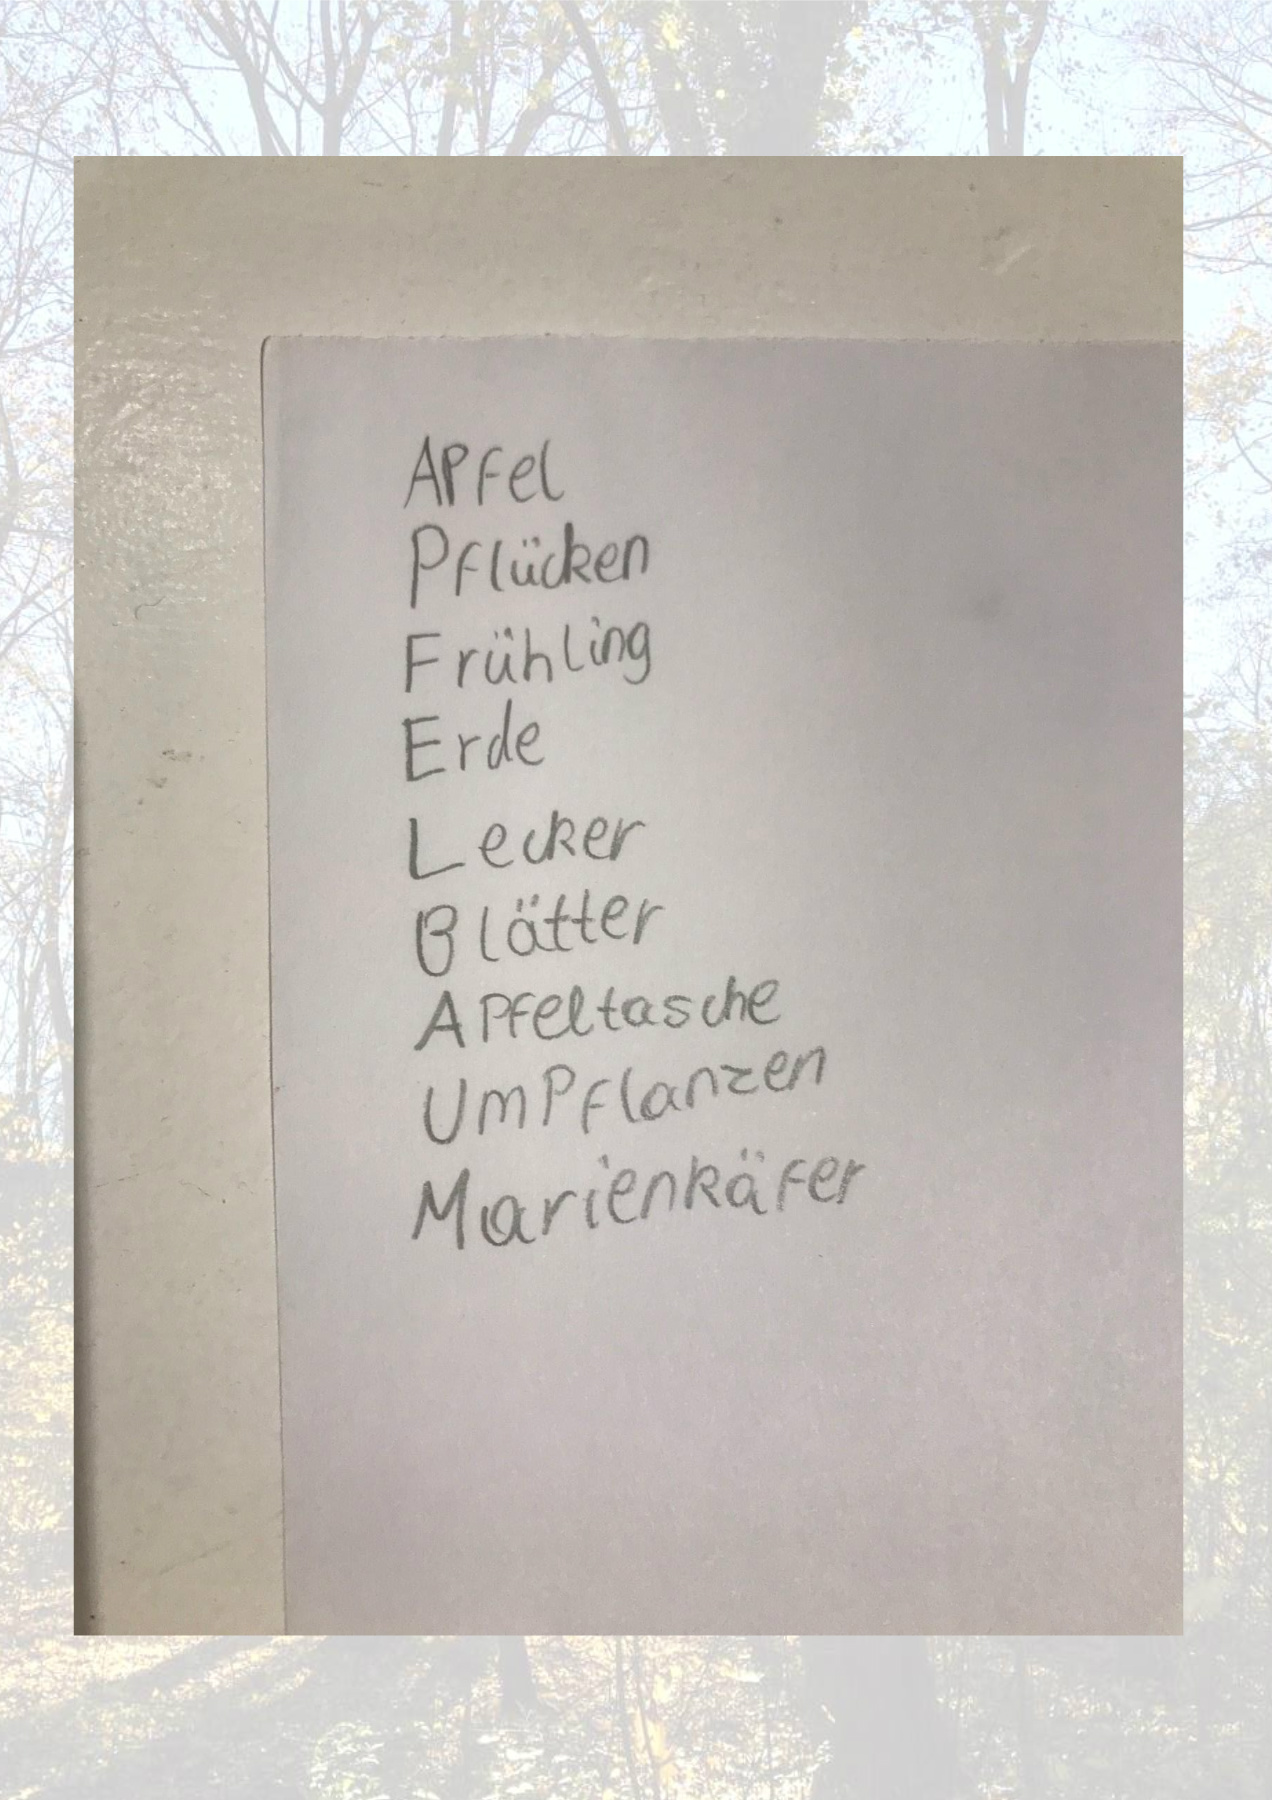 Apfel
Pflücken
Frühling
Erde
Lecker
Blätter
Apfeltasche
Umpflanzen
Marienkäfer